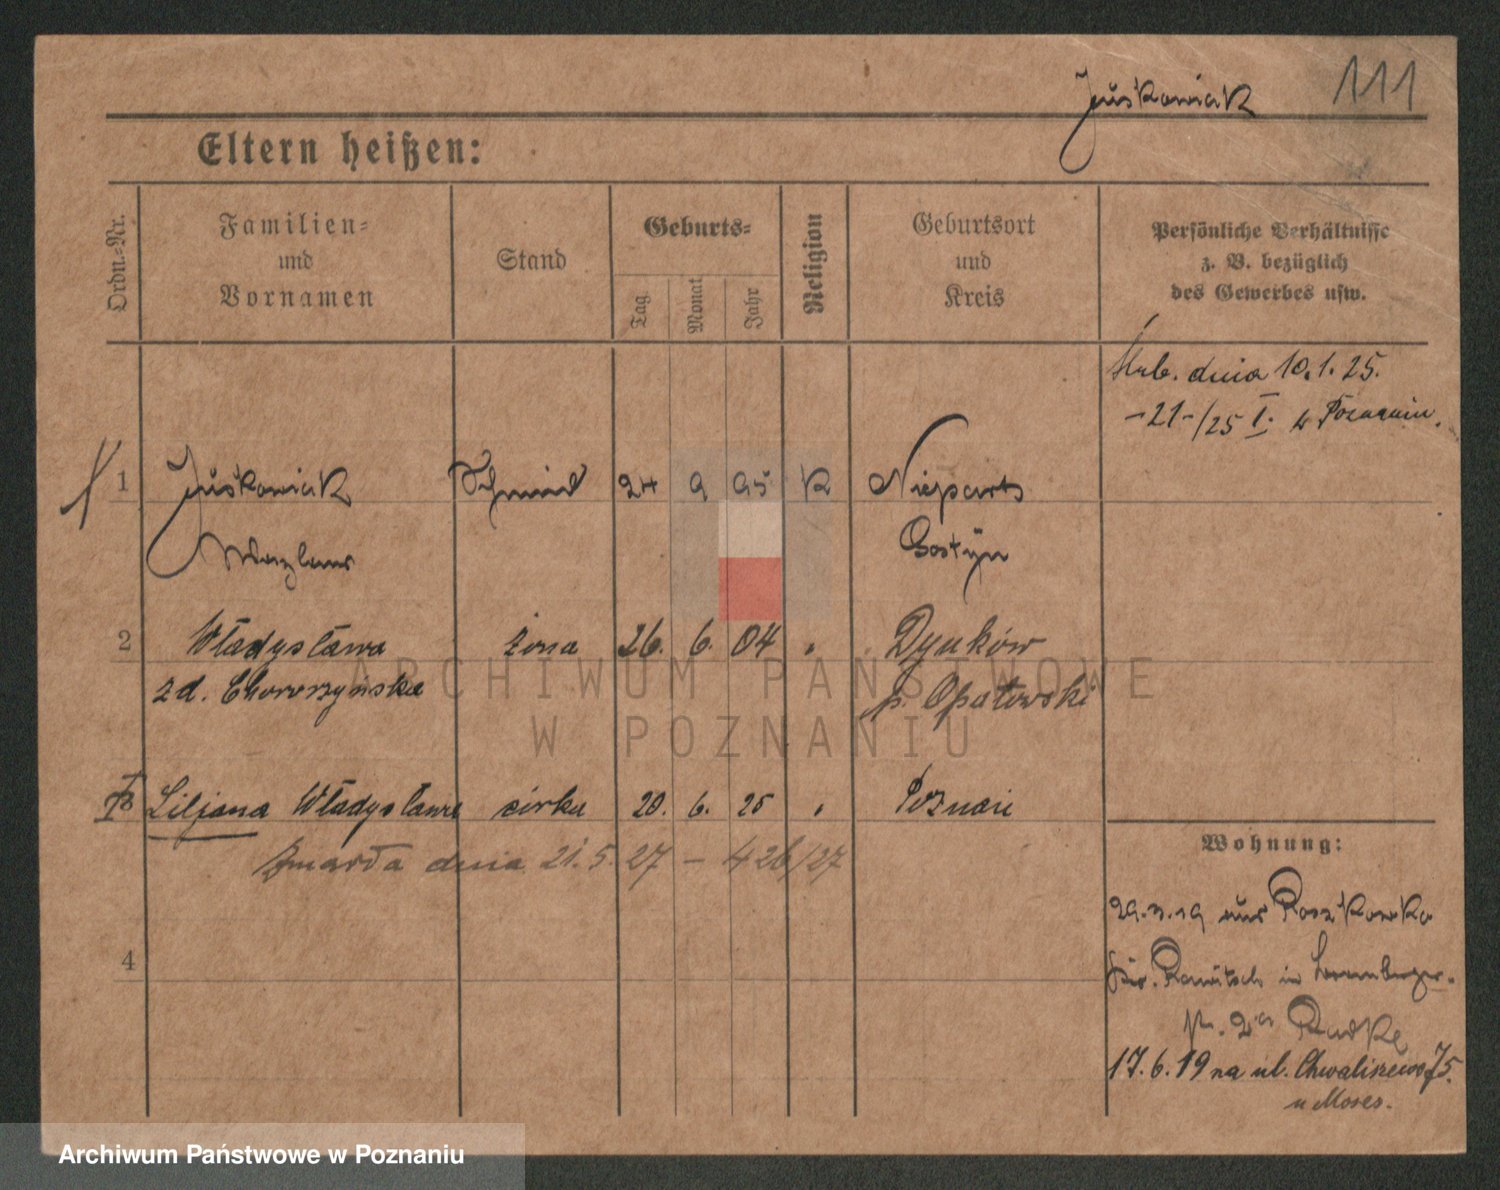 Juśkowiak 111
Eltern heißen:
Ordn.=Nr.
Familien=
und
Vornamen
Stand
Geburts=
Tag
Monat
Jahr
Religion
Geburtsort
und
Kreis
Persönliche Verhältnisse
z. B. bezüglich
des Gewerbes usw.
Ślub. dnia 10.1.25.
-21-/25 I. w Poznaniu.
1 Juśkowiak Schmied 24 9 95 K Niepart
Wazlaus Gostÿn
2 Władysława żona 26. 6. 04 Dynków
zd. Choworzyńska p. Opatowski
3 Liljana Władysława córka 20. 6. 25 Poznań
Zmarła dnia 21.5.27 - 426/27
4
Wohnung:
29.3.19 aus Roszkowko
Kr. Rawitsch in
Radke
17.6.19 na ul. Chwaliszewo 75.
u Moses.
ARCHIWUM PAŃSTWOWE
W POZNANIU
Archiwum Państwowe w Poznaniu